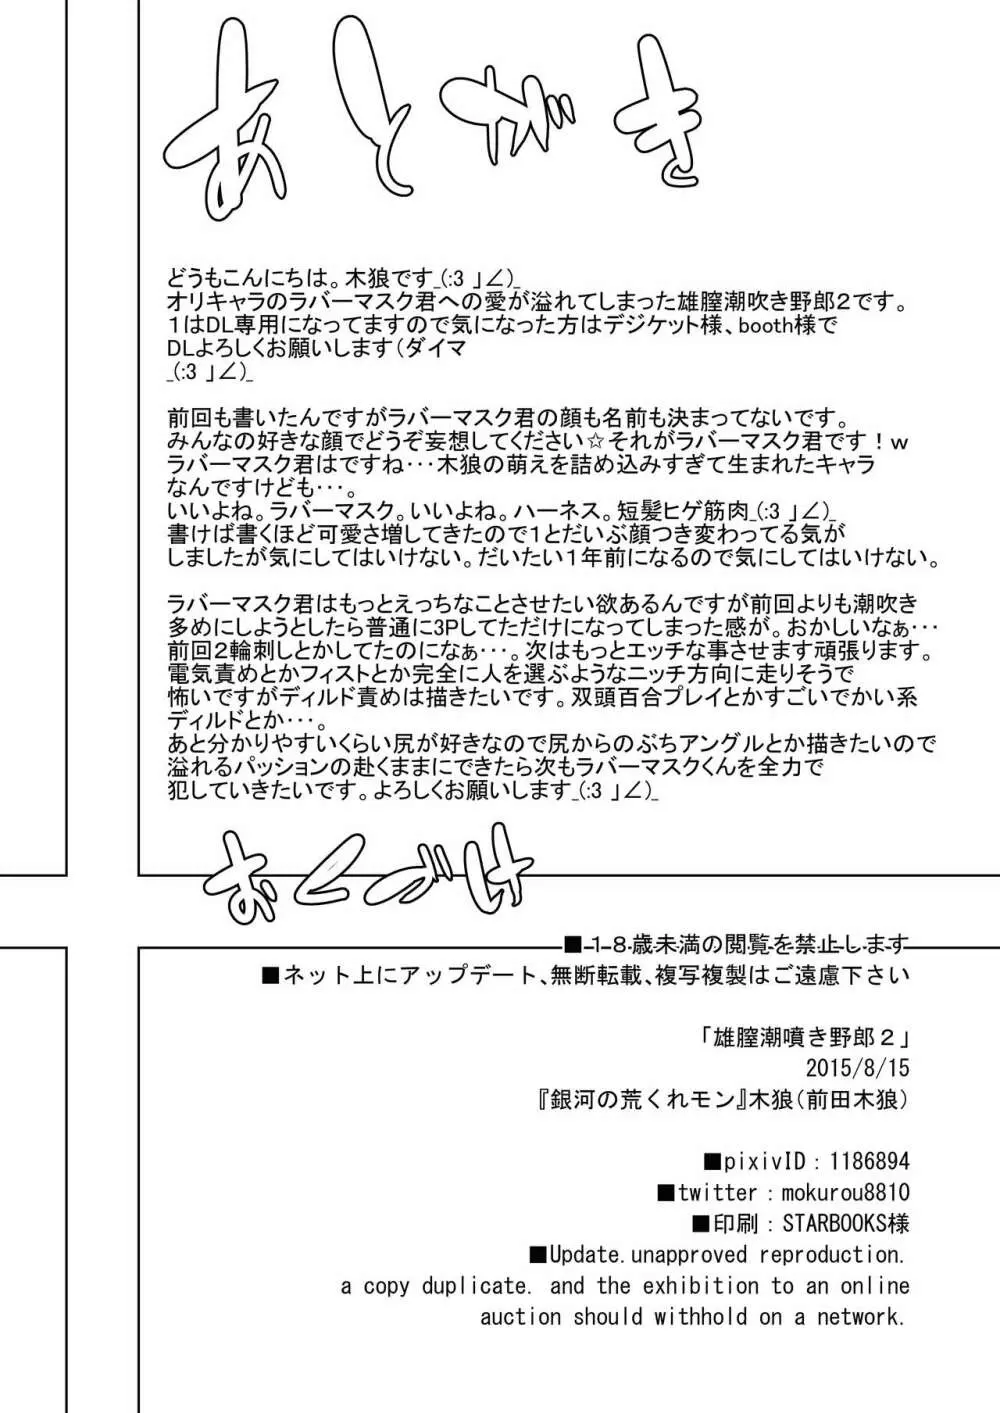 あとがき
どうもこんにちは。木狼です_(:3 」∠)_
オリキャラのラバーマスク君への愛が溢れてしまった雄膣潮吹き野郎２です。
１はDL専用になってますので気になった方はデジケット様、booth様で
DLよろしくお願いします（ダイマ
_(:3 」∠)_
前回も書いたんですがラバーマスク君の顔も名前も決まってないです。
みんなの好きな顔でどうぞ妄想してください☆それがラバーマスク君です！ｗ
ラバーマスク君はですね・・・木狼の萌えを詰め込みすぎて生まれたキャラ
なんですけども・・・。
いいよね。ラバーマスク。いいよね。ハーネス。短髪ヒゲ筋肉_(:3 」∠)_
書けば書くほど可愛さ増してきたので１とだいぶ顔つき変わってる気が
しましたが気にしてはいけない。だいたい１年前になるので気にしてはいけない。
ラバーマスク君はもっとえっちなことさせたい欲あるんですが前回よりも潮吹き
多めにしようとしたら普通に3Pしてただけになってしまった感が。おかしいなぁ・・・
前回２輪刺しとかしてたのになぁ・・・。次はもっとエッチな事させます頑張ります。
電気責めとかフィストとか完全に人を選ぶようなニッチ方向に走りそうで
怖いですがディルド責めは描きたいです。双頭百合プレイとかすごいでかい系
ディルドとか・・・。
あと分かりやすいくらい尻が好きなので尻からのぶちアングルとか描きたいので
溢れるパッションの赴くままにできたら次もラバーマスクくんを全力で
犯していきたいです。よろしくお願いします_(:3 」∠)_
おくづけ
■１８歳未満の閲覧を禁止します
■ネット上にアップデート、無断転載、複写複製はご遠慮下さい
「雄膣潮噴き野郎２」
2015/8/15
『銀河の荒くれモン』木狼（前田木狼）
■pixivID：1186894
■twitter：mokurou8810
■印刷：STARBOOKS様
■Update.unapproved reproduction.
a copy duplicate. and the exhibition to an online
auction should withhold on a network.